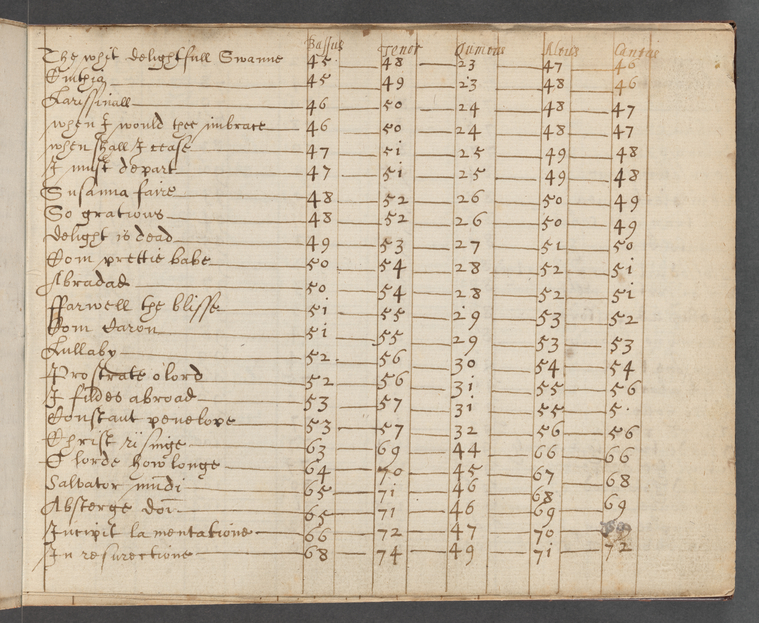 Bassus Tenor Qumtus Altus Cantus
The whit delightfull Swanne 45 48 23 47 46
Cinthia 45 49 23 48 46
46 50 24 48 47
when I would thee imbrace 46 50 24 48 47
when shall I cease 47 51 25 49 48
I must depart 47 51 25 49 48
Susanna faire 48 52 26 50 49
So gratious 48 52 26 50 49
delight is dead 49 53 27 51 50
Com prettie babe 50 54 28 52 51
Abradad 50 54 28 52 51
ffarwell the blisse 51 55 29 53 52
Com Caron 51 55 29 53 53
Lullaby 52 56 30 54 54
Prostrate o lord 52 56 31 55 56
I abroad 53 57 31 55 5.
Constant penelope 53 57 32 56 56
Christ risinge 63 69 44 66 66
O lorde how longe 64 70 45 67 68
Salvator mūdi 65 71 46 68 69
Absterge doī 65 71 46 69
Incipit lamentatione 66 72 47 70
In resurectione 68 74 49 71 72